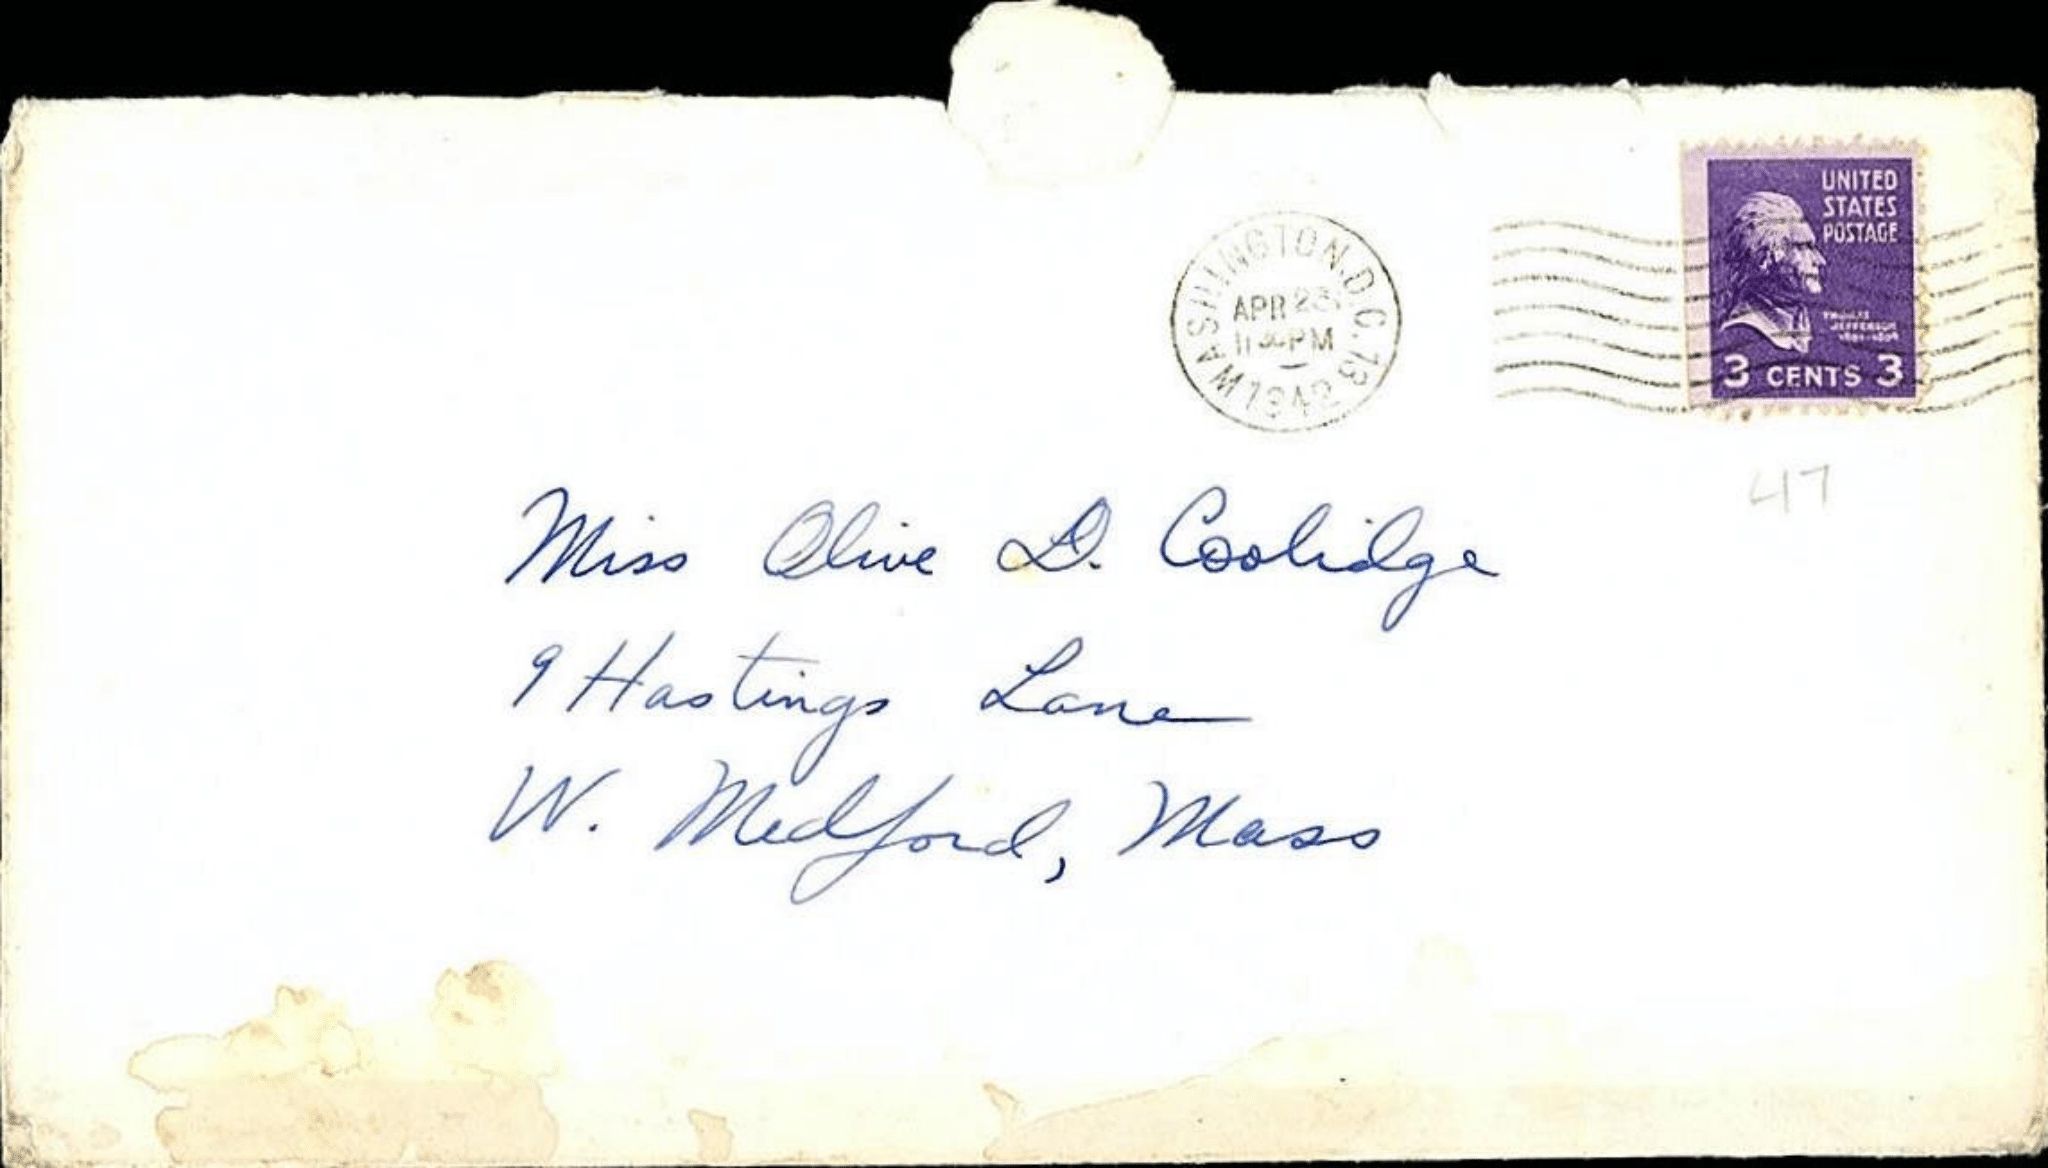 WASHINGTON, D.C. 13
APR 23
11 30 PM
1942
UNITED
STATES
POSTAGE
THOMAS
JEFFERSON
3 CENTS 3
47
Miss Olive D. Coolidge
9 Hastings Lane
W. Medford, Mass